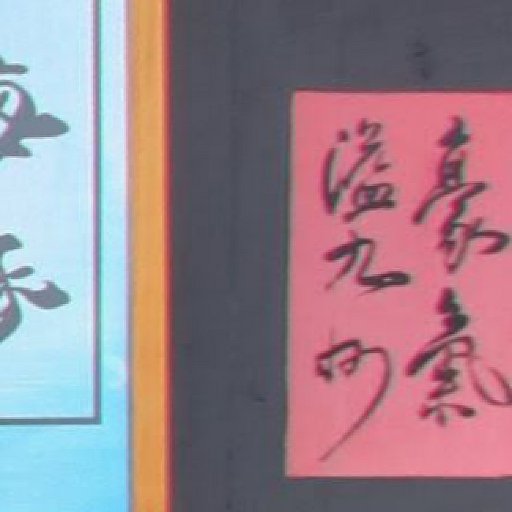 豪氣
溢九州